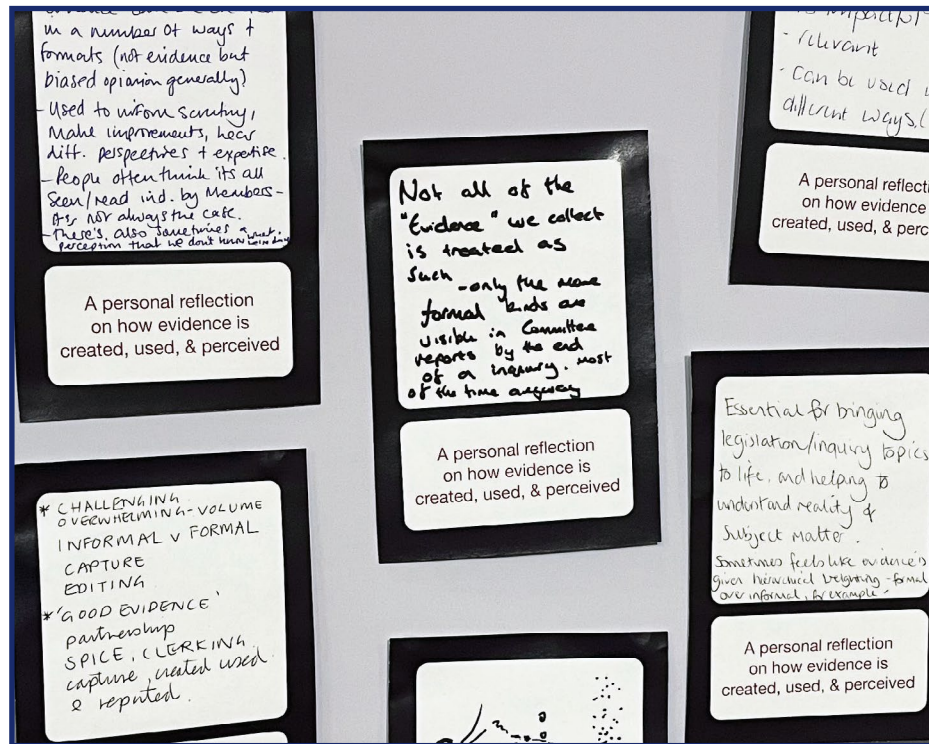 in a number of ways +
formats (not evidence but
biased opinion generally)
- Used to inform scrutiny,
make improvements, hear
diff. perspectives + expertise.
- People often think its all
seen/read ind. by Members -
not always the case.
- There's also sometimes a
perception that we don't know
A personal reflection
on how evidence is
created, used, & perceived
Not all of the
"Evidence" we collect
is treated as
such - only the more
formal kinds are
visible in Committee
reports by the end
of a inquiry. Most
of the time anyway
A personal reflection
on how evidence is
created, used, & perceived
- relevant
- Can be used
different ways.
A personal
on how evidence
created, used, &
* CHALLENGING
OVERWHELMING - VOLUME
INFORMAL v FORMAL
CAPTURE
EDITING
* 'GOOD EVIDENCE'
partnership
SPICE, CLERKING,
capture, created used
& reported.
Essential for bringing
legislation/inquiry topics
to life, and helping to
understand reality of
subject matter.
Sometimes feels like evidence is
given hierarchical weighting - formal
over informal, for example.
A personal reflection
on how evidence is
created, used, & perceived